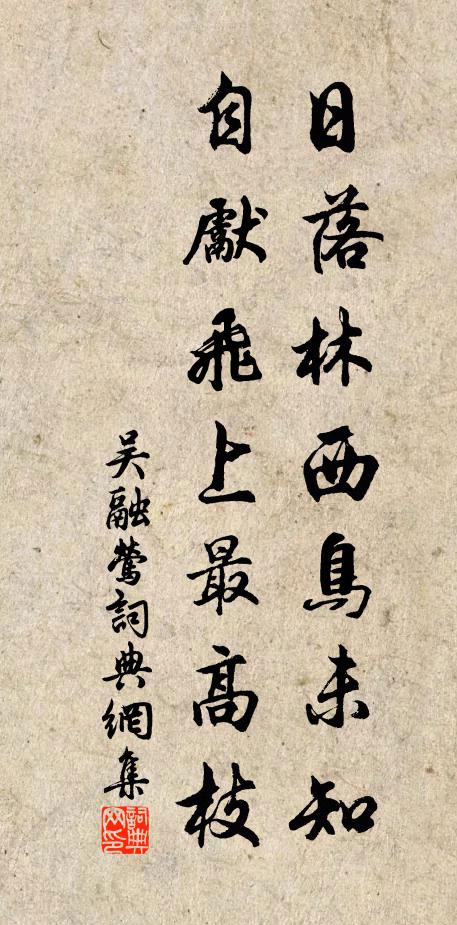 日落林西鳥未知
自獻飛上最高枝
吴融鶯詞典網集
詞典
网印